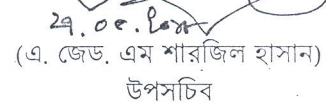 ২৭.০৫.২০২৫
(এ. জেড. এম শারজিল হাসান)
উপসচিব